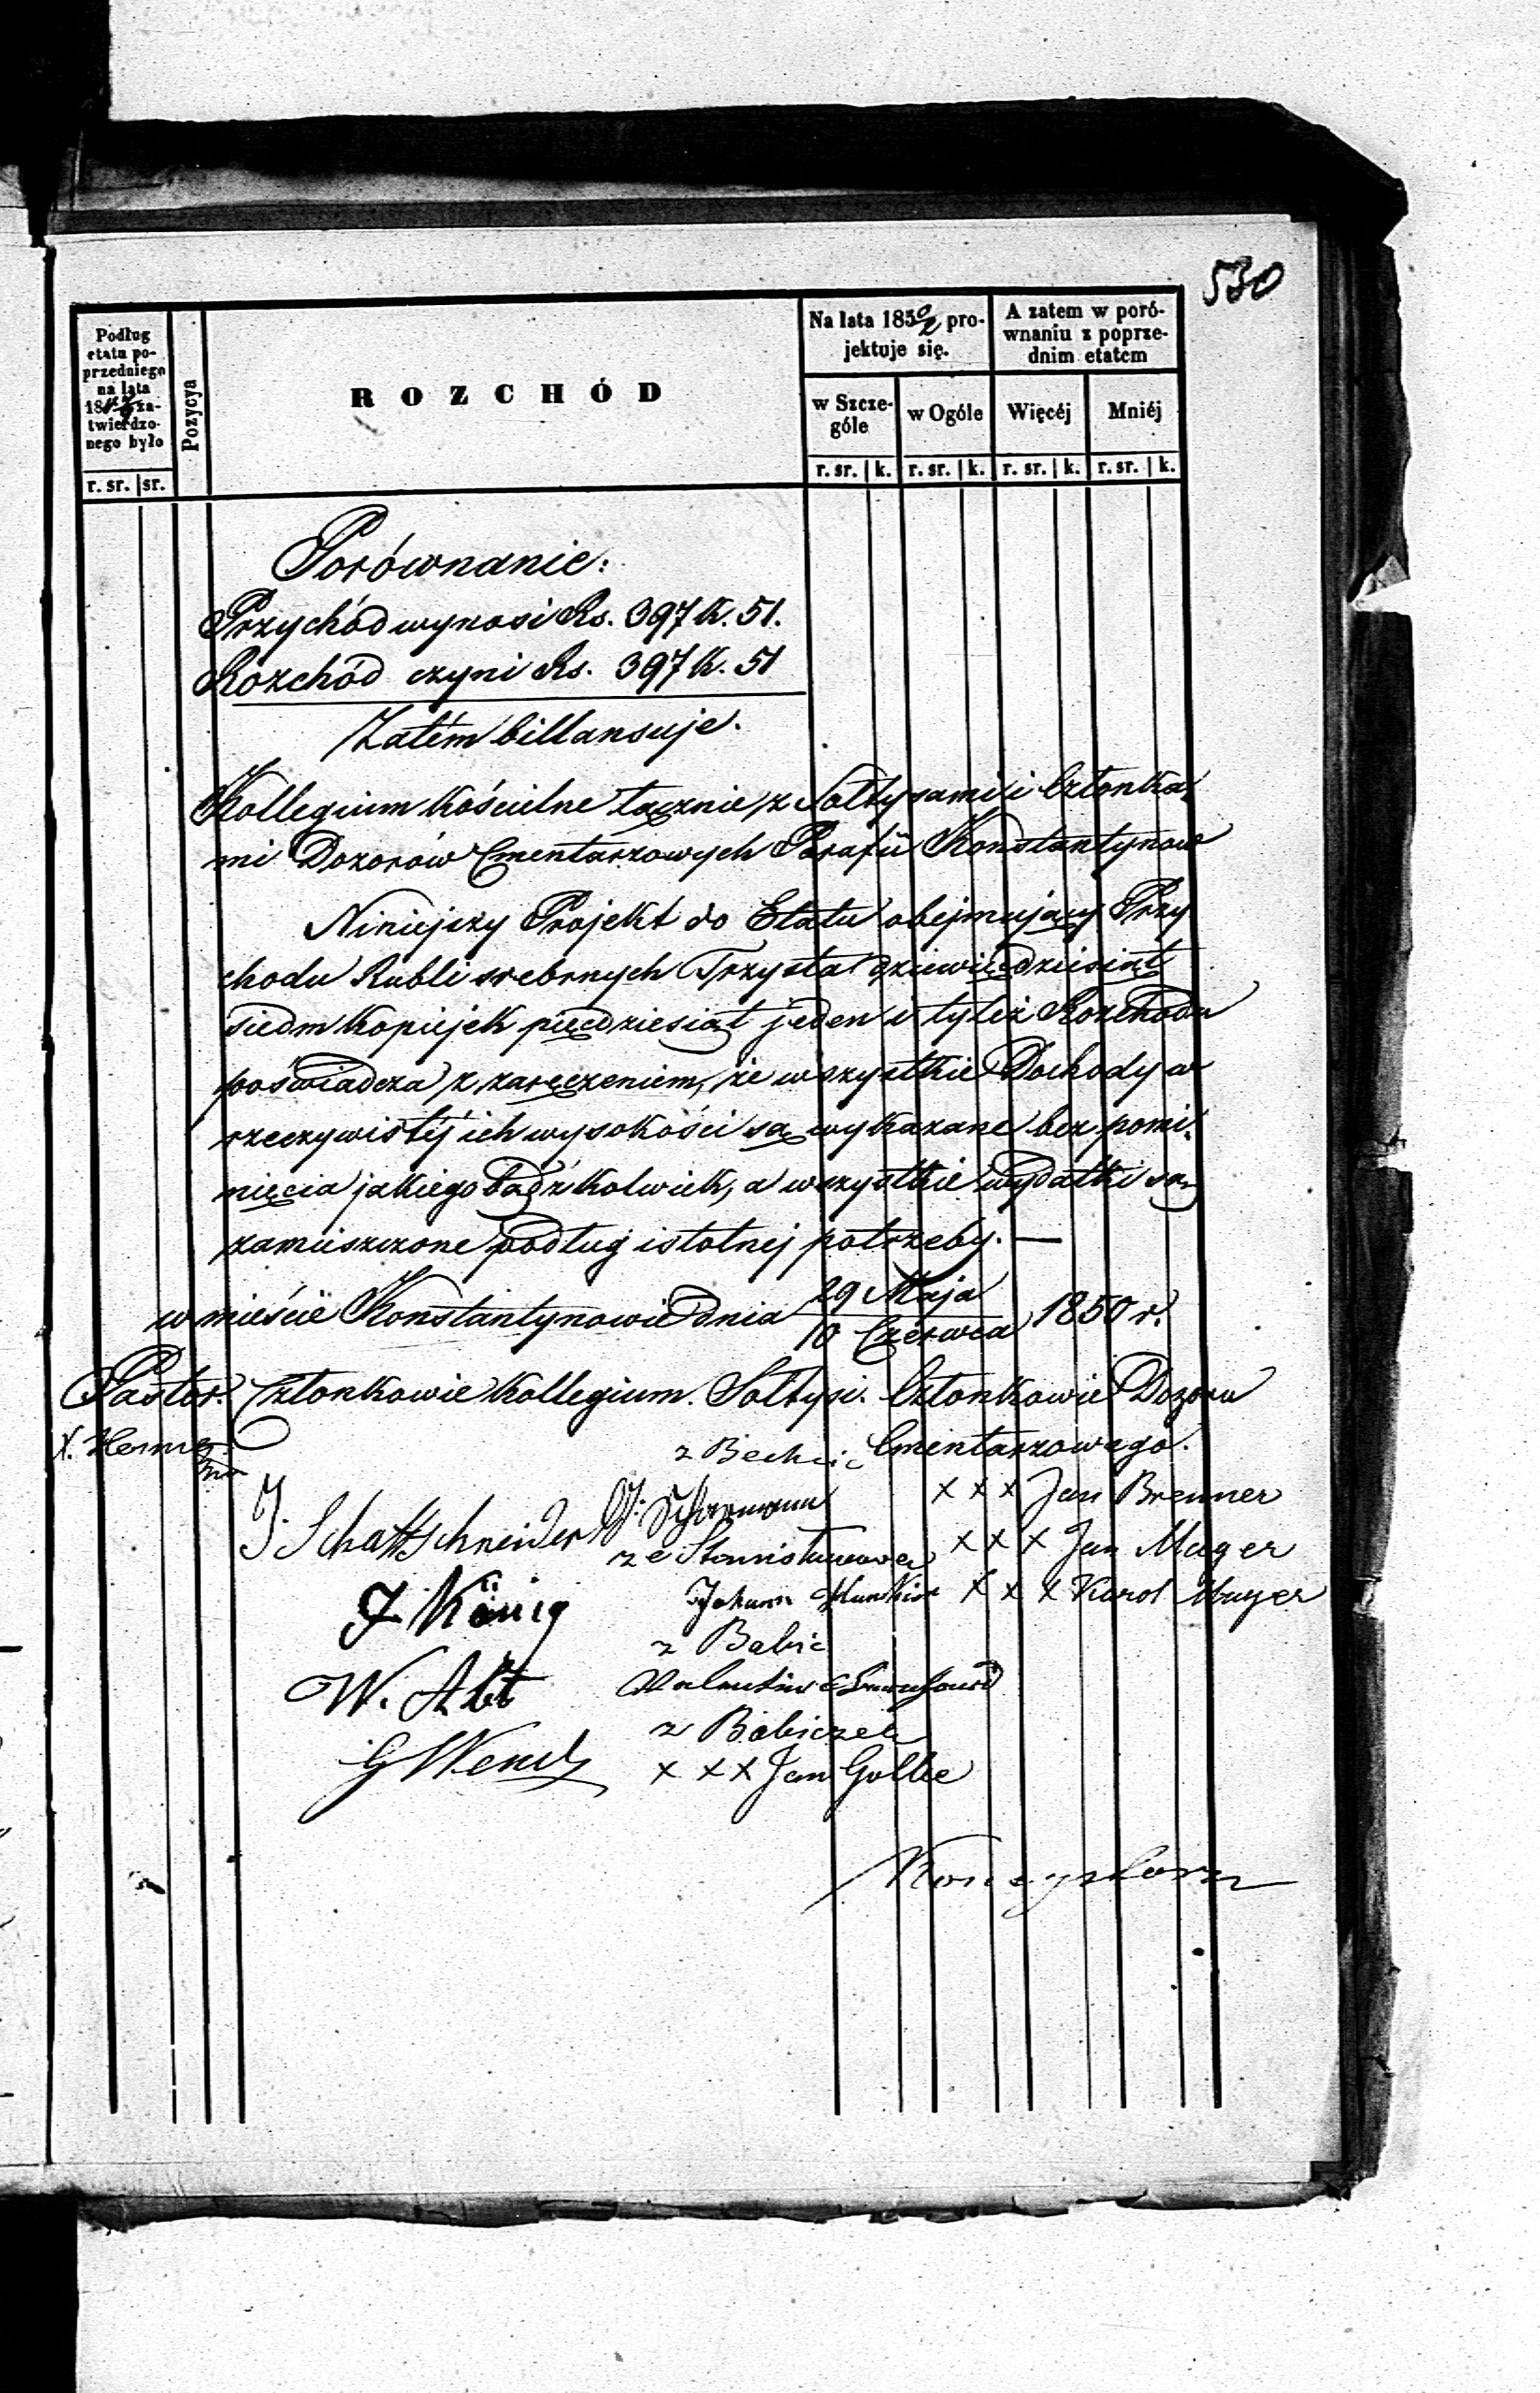 530
Podług
etatu po-
przedniego
na lata
za-
twierdzo-
nego było
Pozycya
ROZCHÓD
Na lata 1850/2 pro-
jektuje się.
A zatem w poró-
wnaniu z poprze-
dnim etatem
w Szcze-
góle
w Ogóle
Więcéj
Mniéj
r. sr. sr.
r. sr. k. r. sr. k. r. sr. k. r. sr. k.
Porównanie:
Przychód wynosi Rs. 397 K. 51.
Rozchód czyni Rs. 397 K. 51
Zatém billansuje.
Kollegium Kościelne łącznie z Sołtysami i Członka-
mi Dozorów Cmentarzowych Parafii Konstantynow
Niniejszy Projekt do Etatu obejmujący Przy
chodu Rubli srebrnych Trzysta dziewiędziesiąt
siedm kopiejek pięcdziesiąt jeden i tyleż Rozchodu
poświadcza z zaręczeniem, że wszystkie Dochody w
rzeczywistéj ich wysokości są wykazane bez pomi-
nięcia jakiego bądź kolwiek, a wszystkie wydatki są
zamieszczone podług istotnej potrzeby. —
w mieście Konstantynowie dnia 29 Maja / 10 Czerwca 1850 r.
Pastor. Członkowie Kollegium. Sołtysi. Członkowie Dozoru
Cmentarzowego.
z Bechcic
x x x Jan Brenner
J. Schattschneider
x x x Jan Mayer
Johann
x x x Karol Mayer
J König
z Babic
W. Abt
Valentin
z Babiczek
G Wende
x x x Jan Golbe